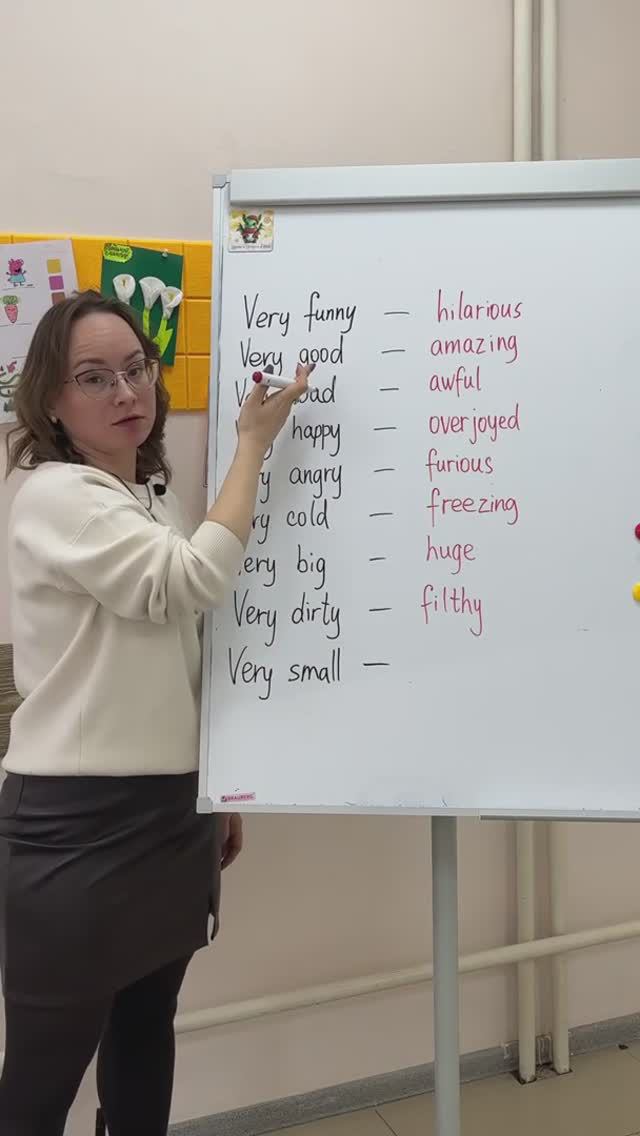 Very funny — hilarious
Very good — amazing
bad — awful
happy — overjoyed
angry — furious
cold — freezing
Very big — huge
Very dirty — filthy
Very small —
BRAUBERG